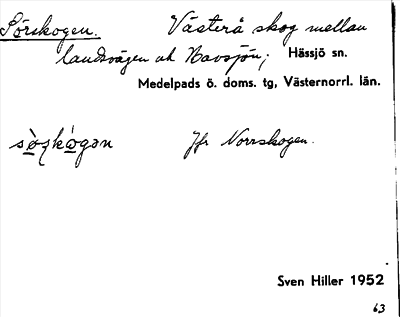 Sörskogen. Västerå skog mellan
landsvägen och Navsjön; Hässjö sn.
Medelpads ö. doms. tg, Västernorrl. län.
Jfr Norrskogen.
Sven Hiller 1952
63